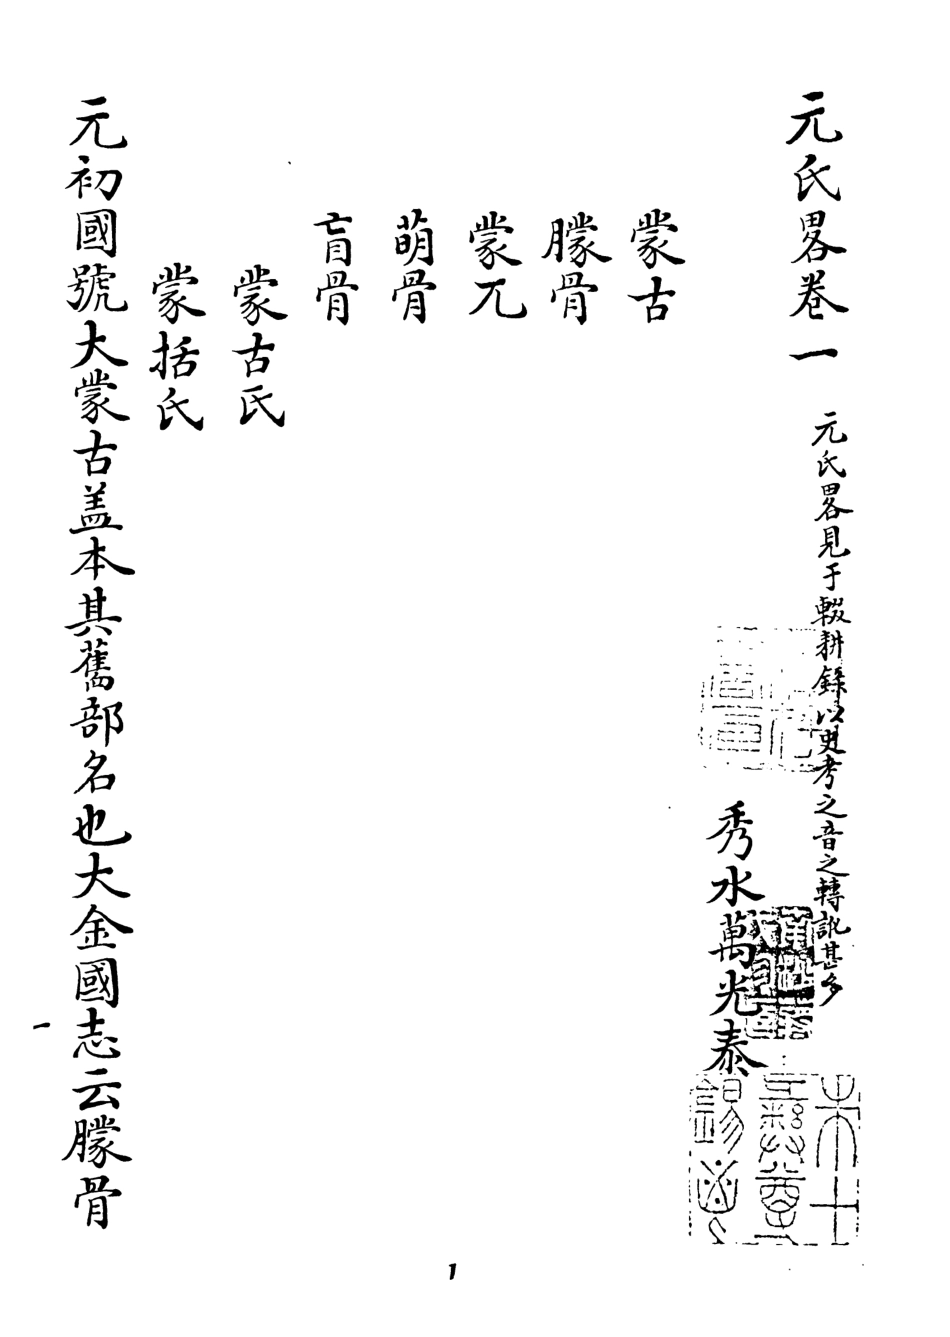 元氏畧卷一
元氏畧見于輟耕錄以史考之音之轉訛甚多
秀水萬光泰
蒙古
朦骨
蒙兀
萌骨
盲骨
蒙古氏
蒙括氏
元初國號大蒙古盖本其舊部名也大金國志云朦骨
一
1